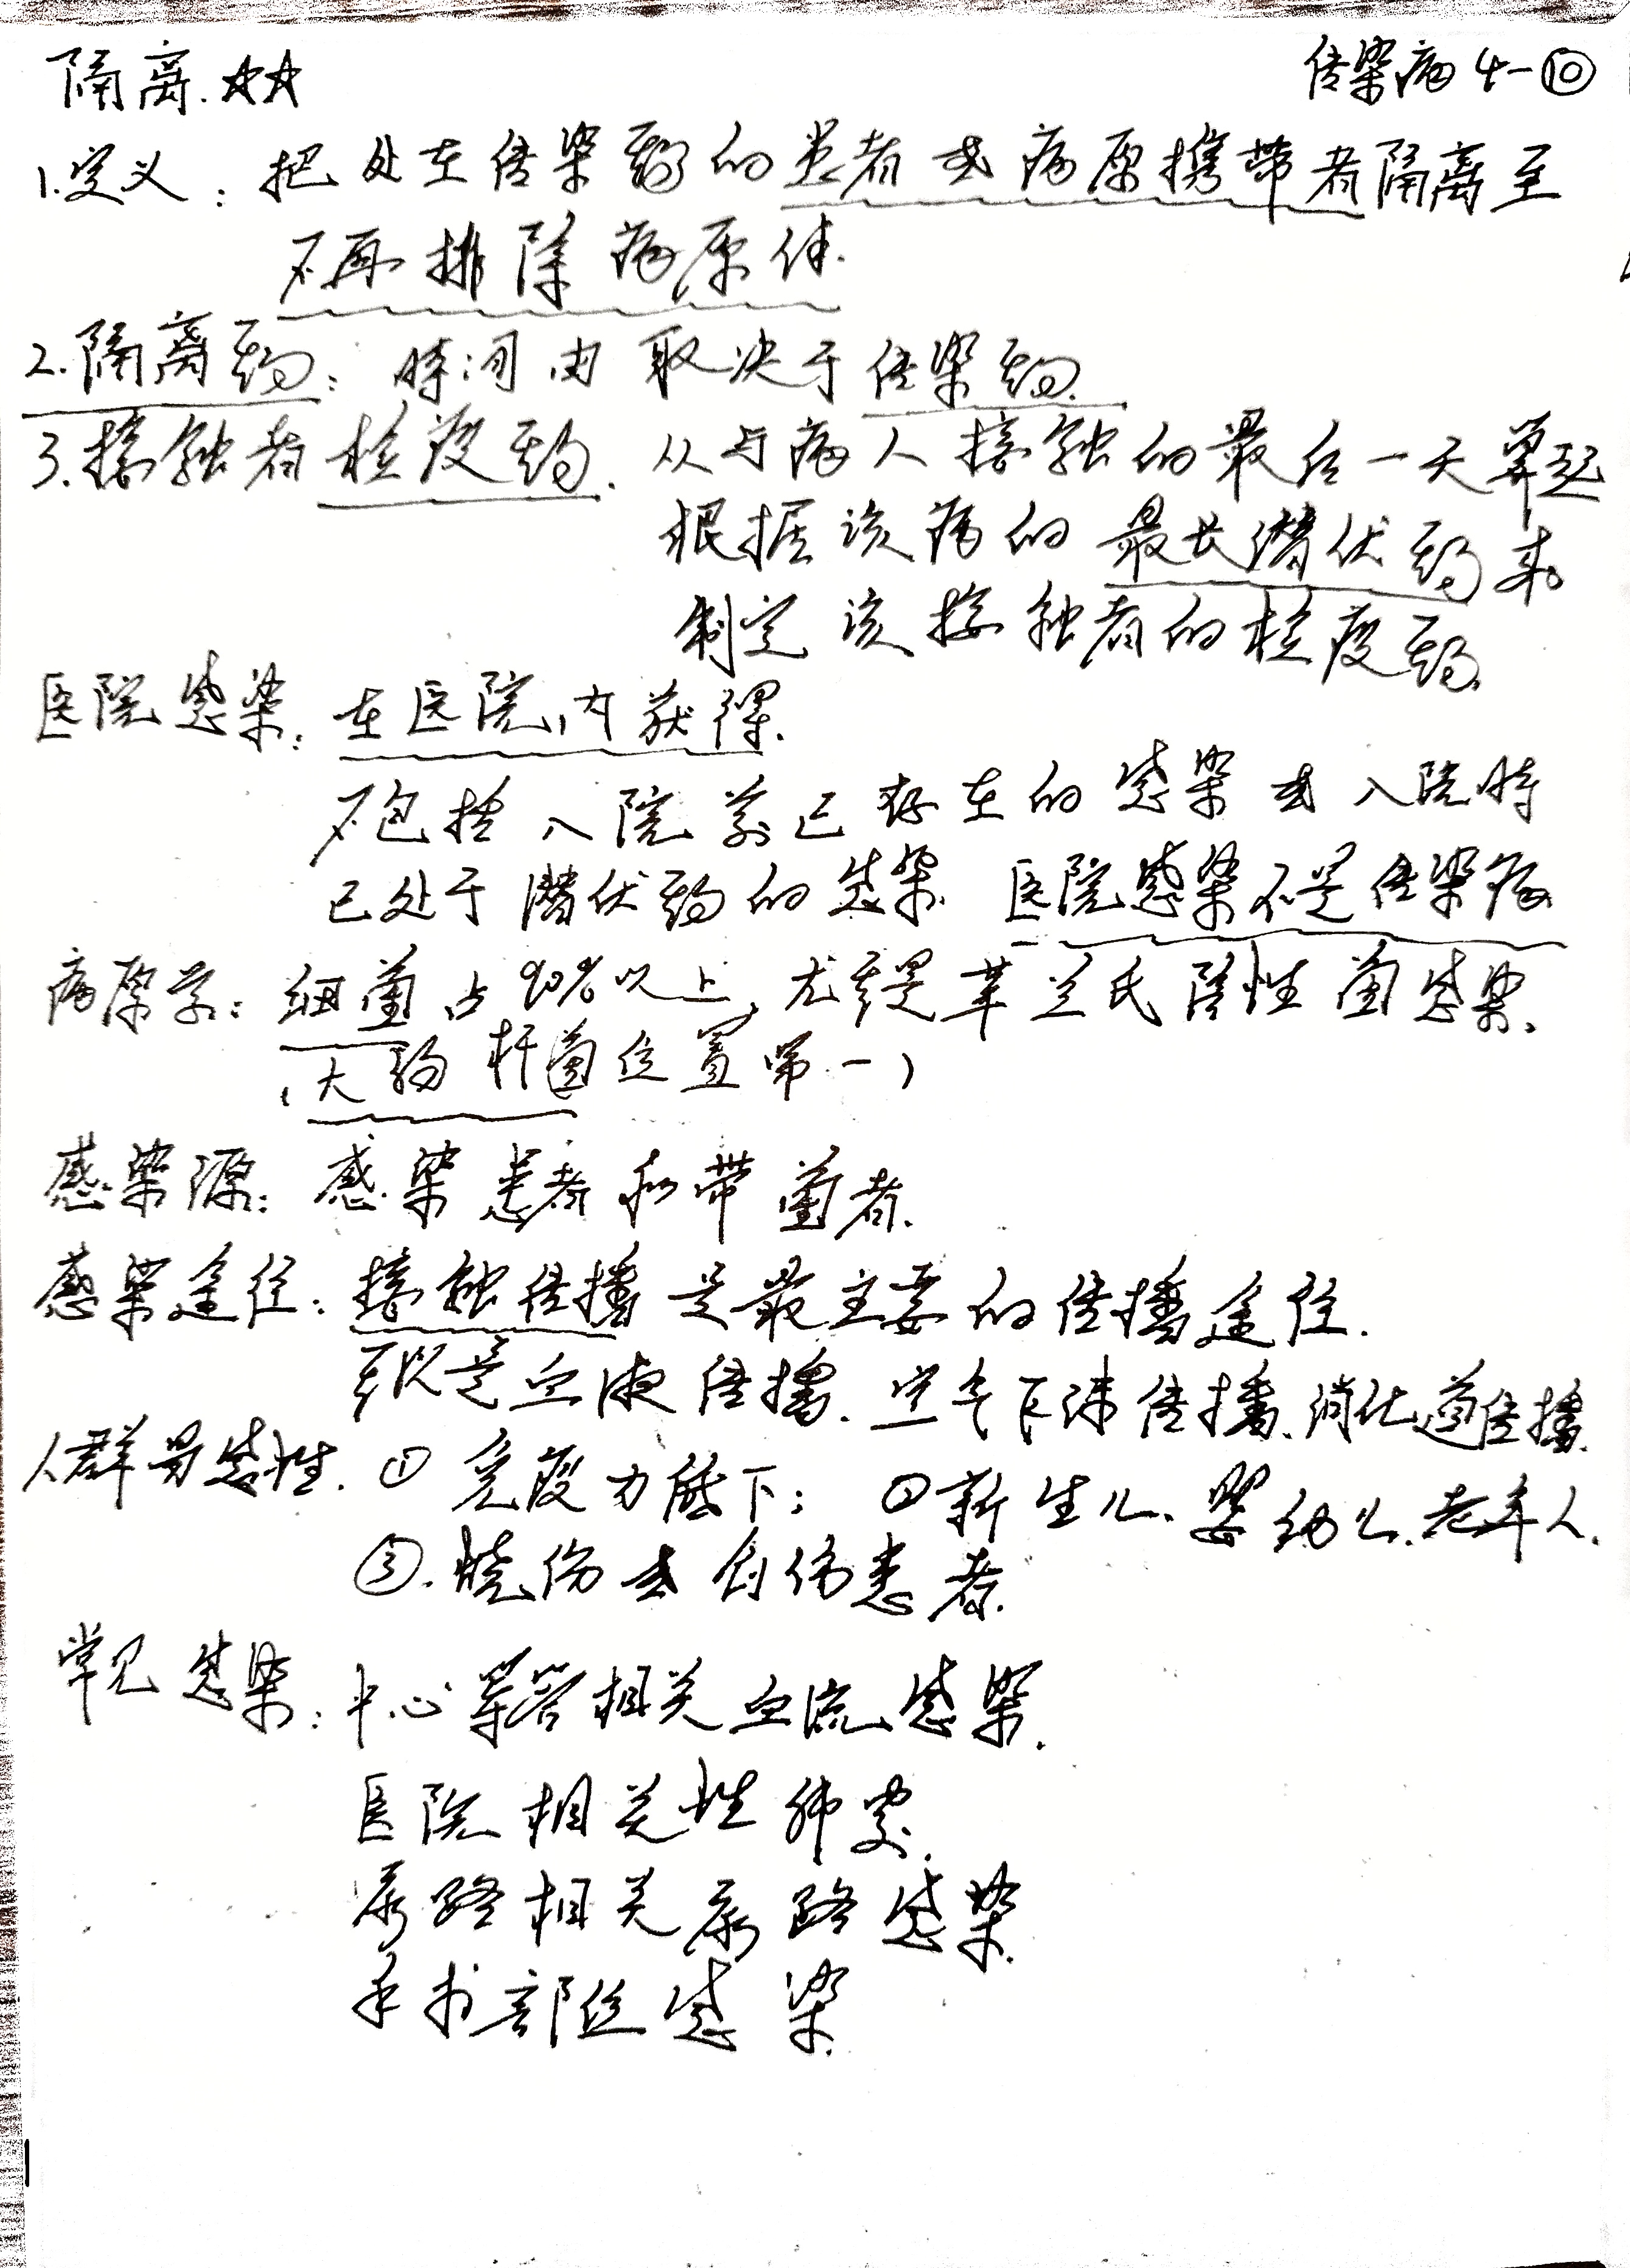 隔离.☆☆
传染病 4-⑩
1.定义：把处在传染期的患者或病原携带者隔离至
不再排除病原体.
2.隔离期：时间由取决于传染期.
3.接触者检疫期.从与病人接触的最后一天算起
根据该病的最长潜伏期来
制定该接触者的检疫期.
医院感染：在医院内获得.
不包括入院前已存在的感染或入院时
已处于潜伏期的感染.医院感染不是传染病
病原学：细菌占90%以上,尤其是革兰氏阴性菌感染.
(大肠杆菌位置第一)
感染源：感染患者和带菌者.
感染途径：接触传播是最主要的传播途径.
其次是血液传播.空气飞沫传播.消化道传播.
人群易感性.①免疫力低下；②新生儿.婴幼儿.老年人.
③.烧伤或创伤患者.
常见感染：中心导管相关血流感染.
医院相关性肺炎.
尿路相关尿路感染.
手术部位感染.